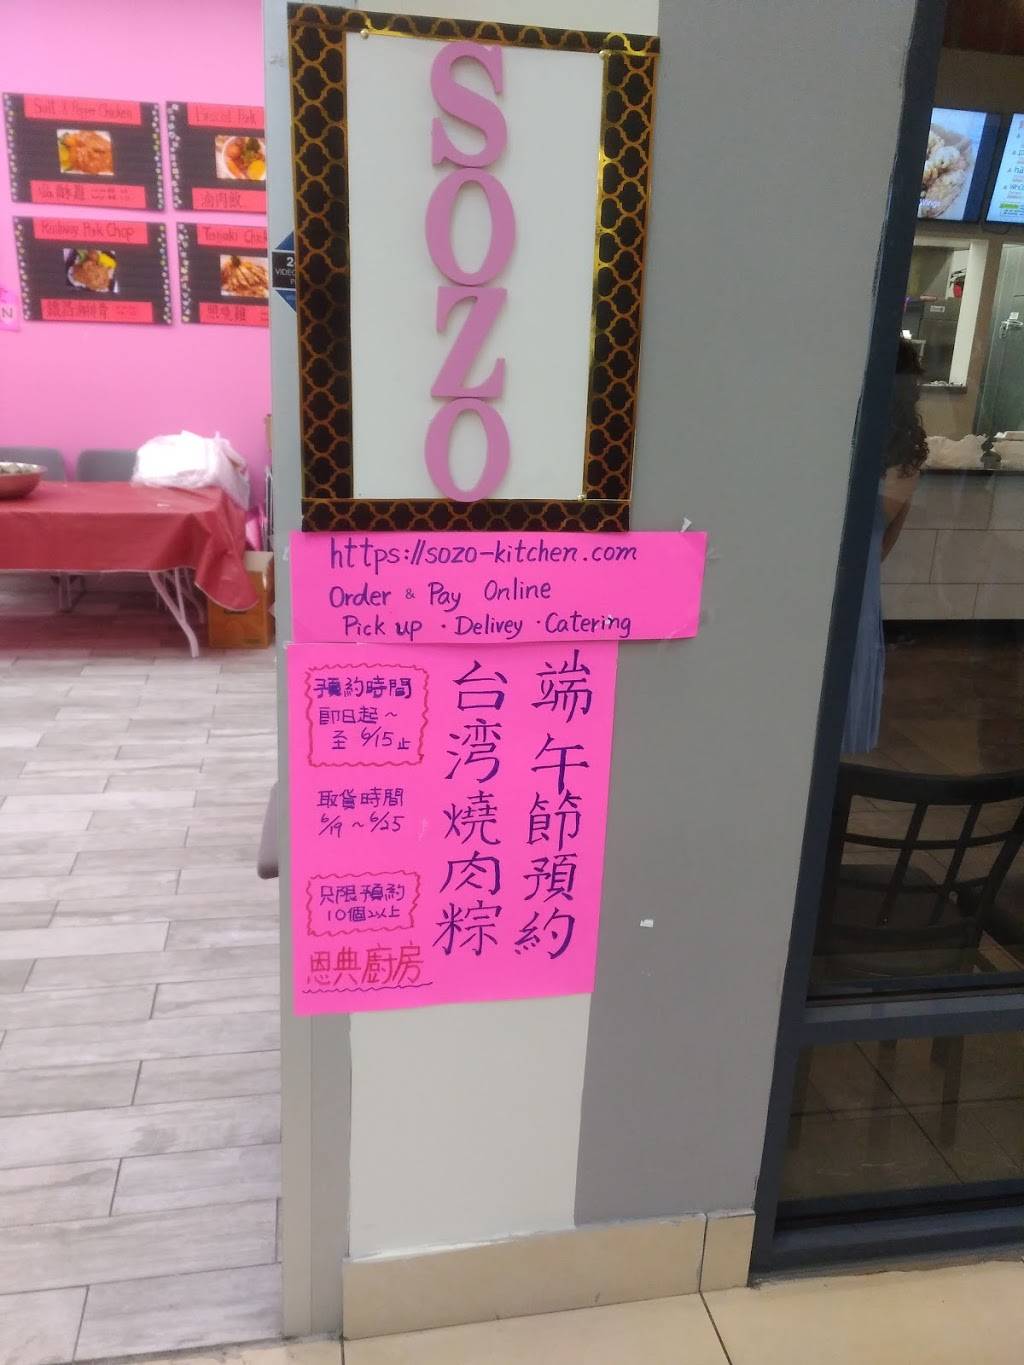 SOZO
https://sozo-kitchen.com
Order & Pay Online
Pick up · Delivey · Catering
端午節預約
台湾燒肉粽
預約時間
即日起~
至 6/15止
取貨時間
6/19~6/25
只限預約
10個以上
恩典廚房
Salt & Pepper Chicken
塩酥雞
Braised Pork
滷肉飯
Railway Pork Chop
鐵路排骨
Teriyaki Chick
照燒雞
N
VIDEO
Wings